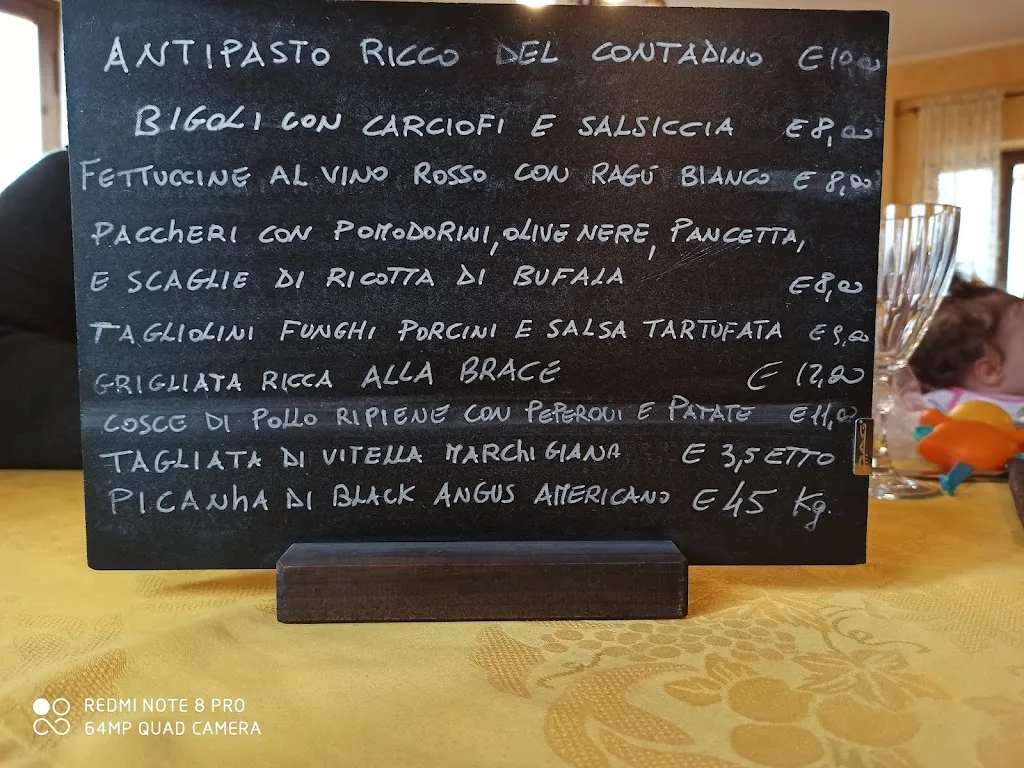 ANTIPASTO RICCO DEL CONTADINO €10,00
BIGOLI CON CARCIOFI E SALSICCIA €8,00
FETTUCCINE AL VINO ROSSO CON RAGÚ BIANCO €8,00
PACCHERI CON POMODORINI, OLIVE NERE, PANCETTA,
E SCAGLIE DI RICOTTA DI BUFALA €8,00
TAGLIOLINI FUNGHI PORCINI E SALSA TARTUFATA €9,00
GRIGLIATA RICCA ALLA BRACE € 12,00
COSCE DI POLLO RIPIENE CON PEPERONI E PATATE €11,00
TAGLIATA DI VITELLA MARCHIGIANA € 3,5 ETTO
PICANHA DI BLACK ANGUS AMERICANO €45 Kg.
REDMI NOTE 8 PRO
64MP QUAD CAMERA